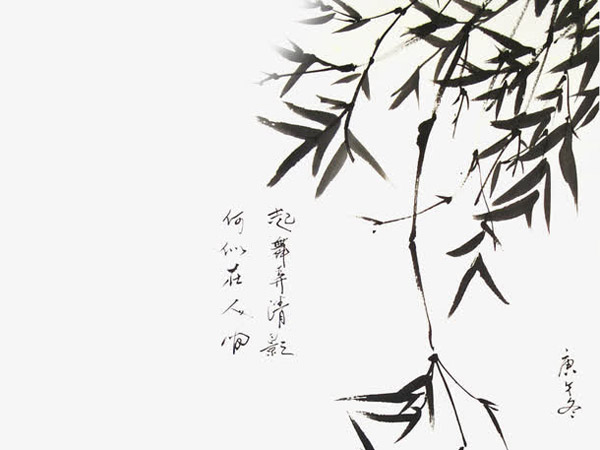 起舞弄清影
何似在人间
庚午冬